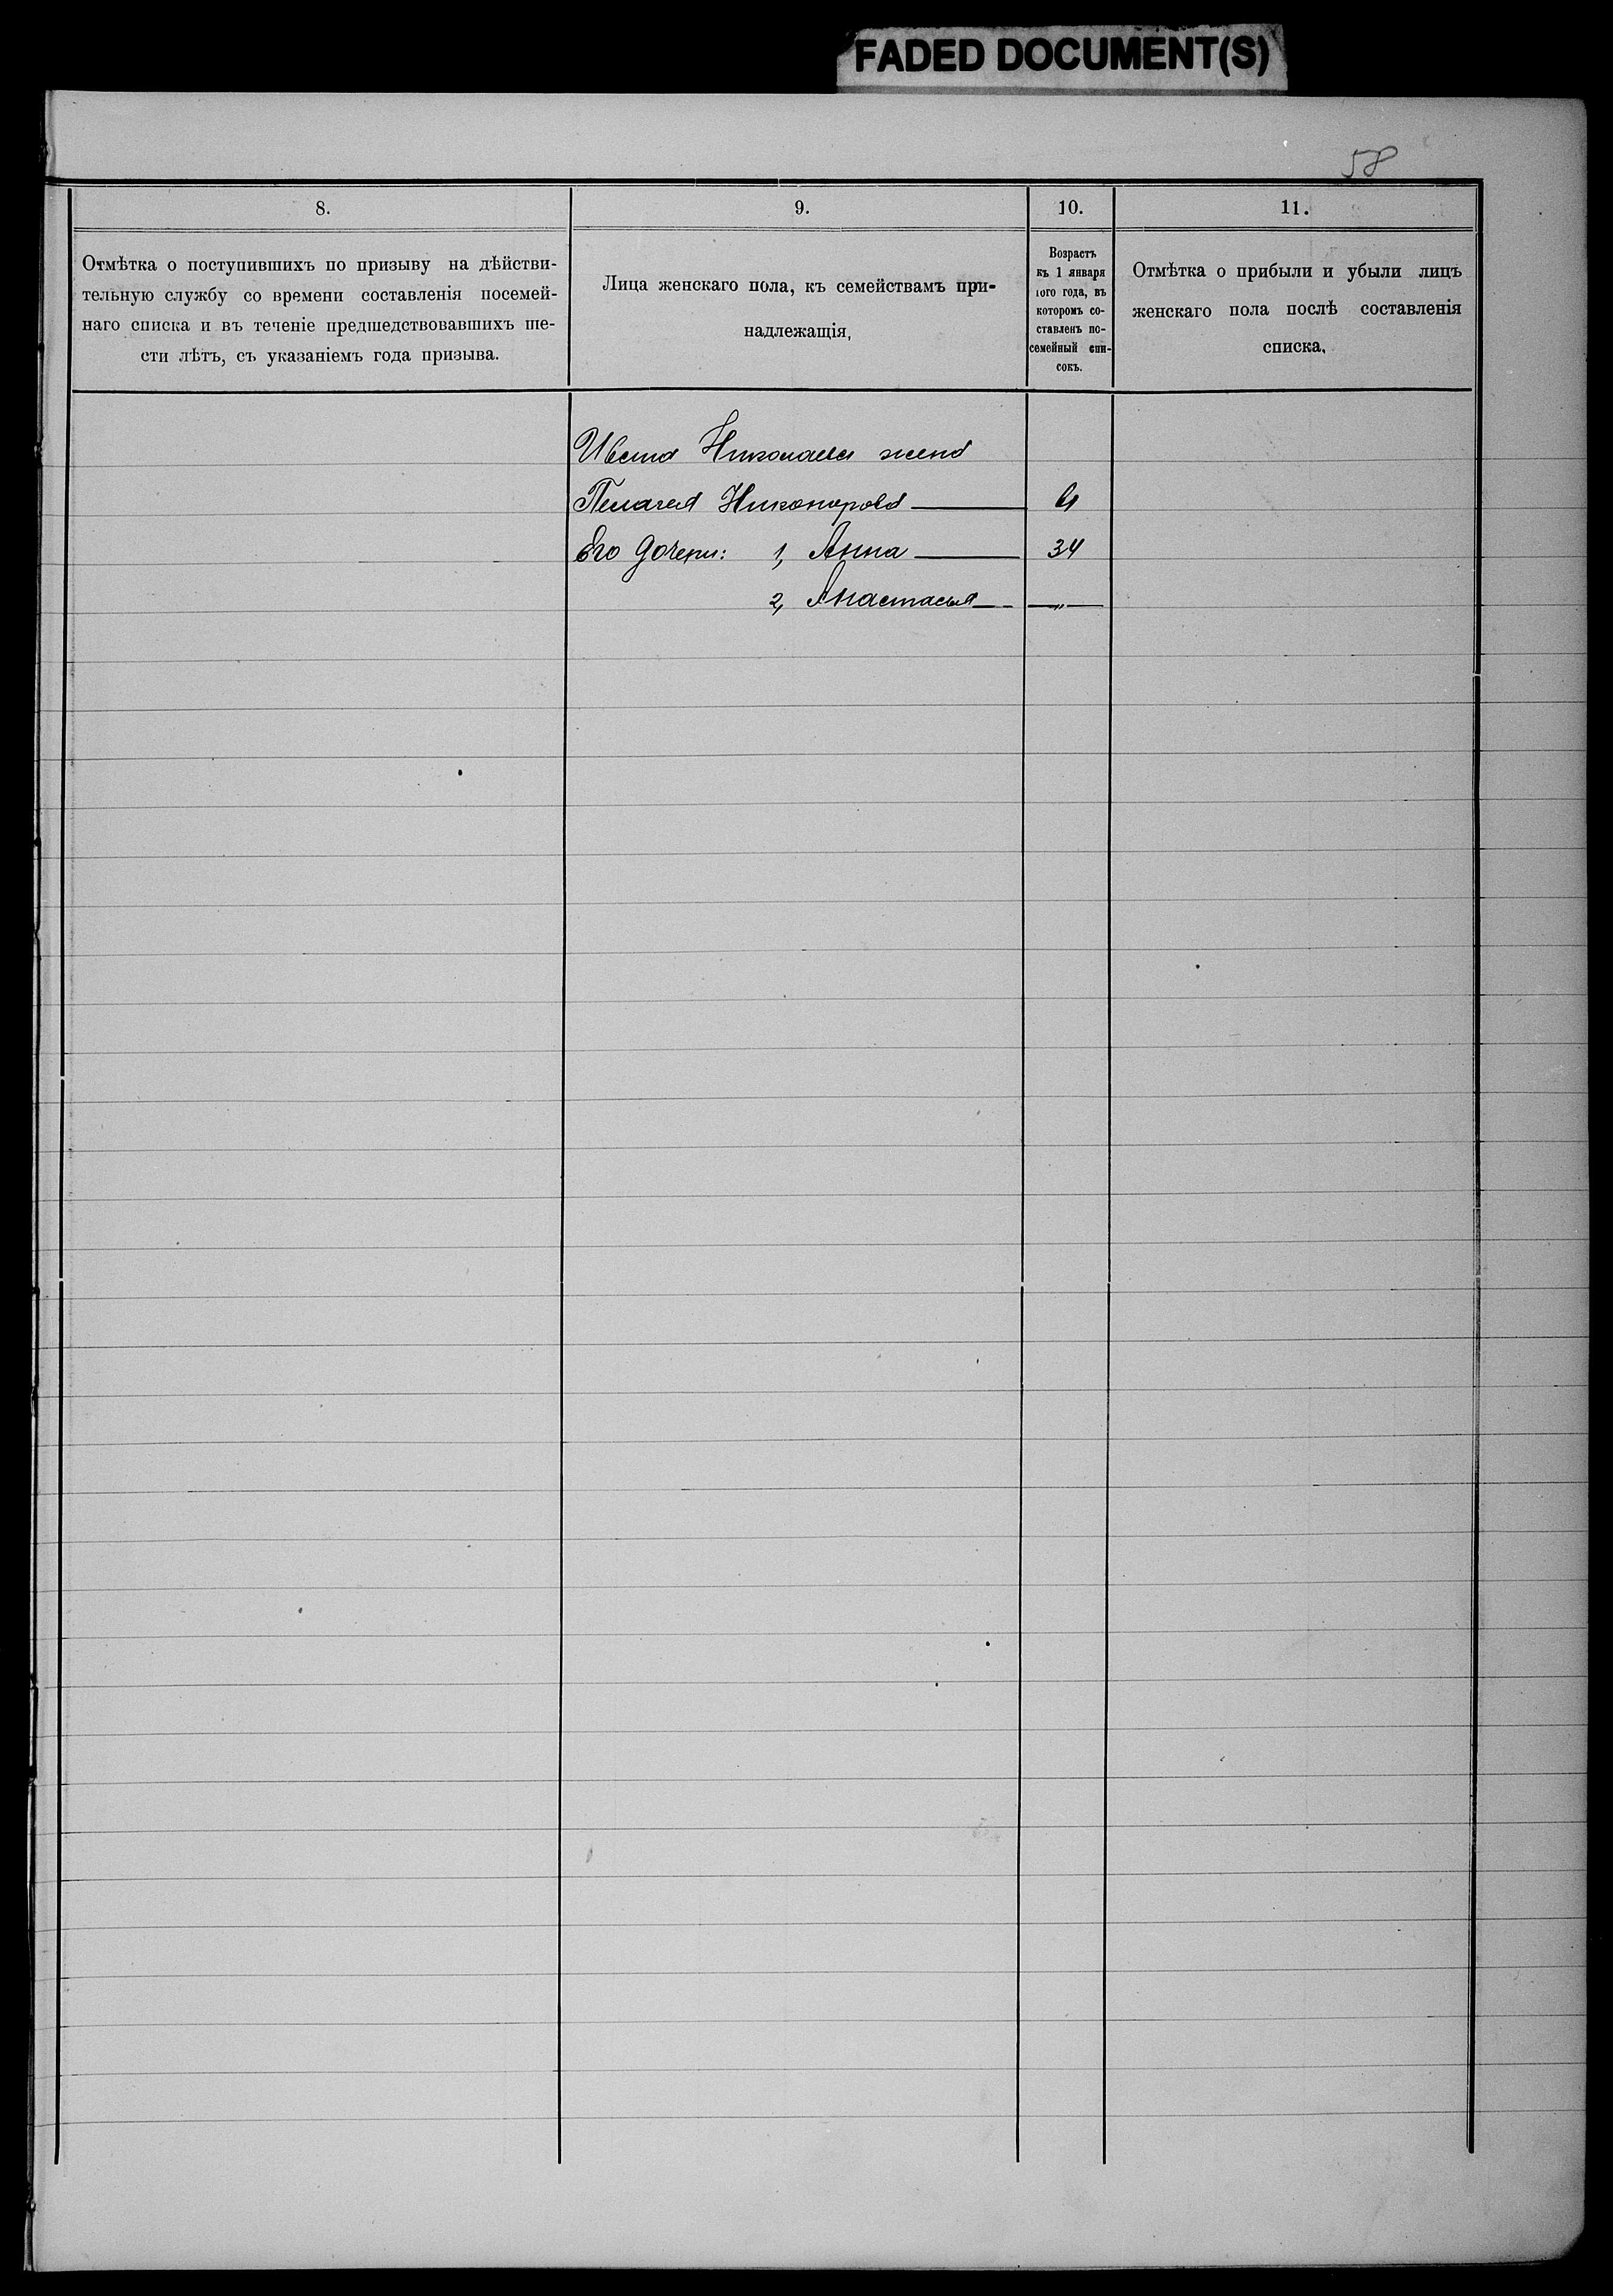 FADED DOCUMENT(S)
58
8.
9.
10.
11.
Отмѣтка о поступившихъ по призыву на дѣйстви-
тельную службу со времени составленія посемей-
наго списка и въ теченіе предшедствовавшихъ ше-
сти лѣтъ, съ указаніемъ года призыва.
Лица женскаго пола, къ семействамъ при-
надлежащія,
Возрастъ
къ 1 января
того года, въ
которомъ со-
ставленъ по-
семейный спи-
сокъ.
Отмѣтка о прибыли и убыли лицъ
женскаго пола послѣ составленія
списка.
Николаева жена
Пелагея Никонорова
Его дочери: 1, Анна 34
2, Анастасья — „ —